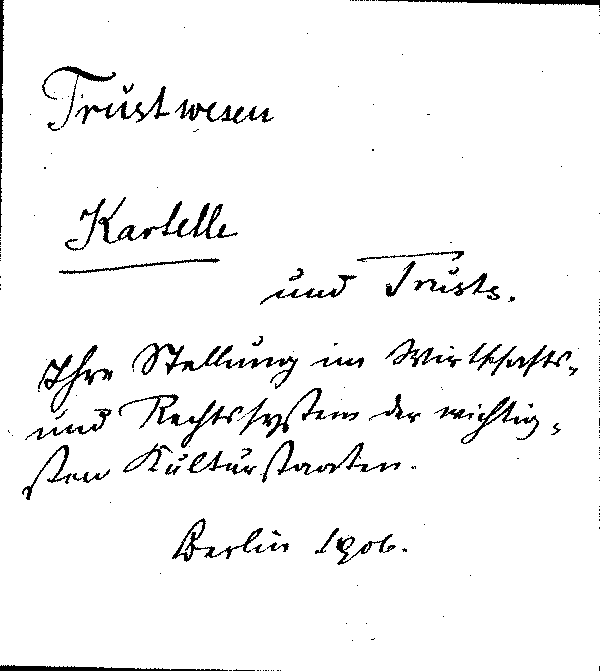 Trustwesen
Kartelle
und Trusts.
Ihre Stellung im Wirtschafts-
und Rechtssystem der wichtig-
sten Kulturstaaten.
Berlin 1906.